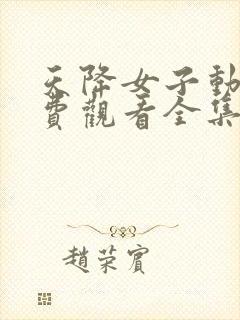 天降女子動
費觀看全集
趙荣賓